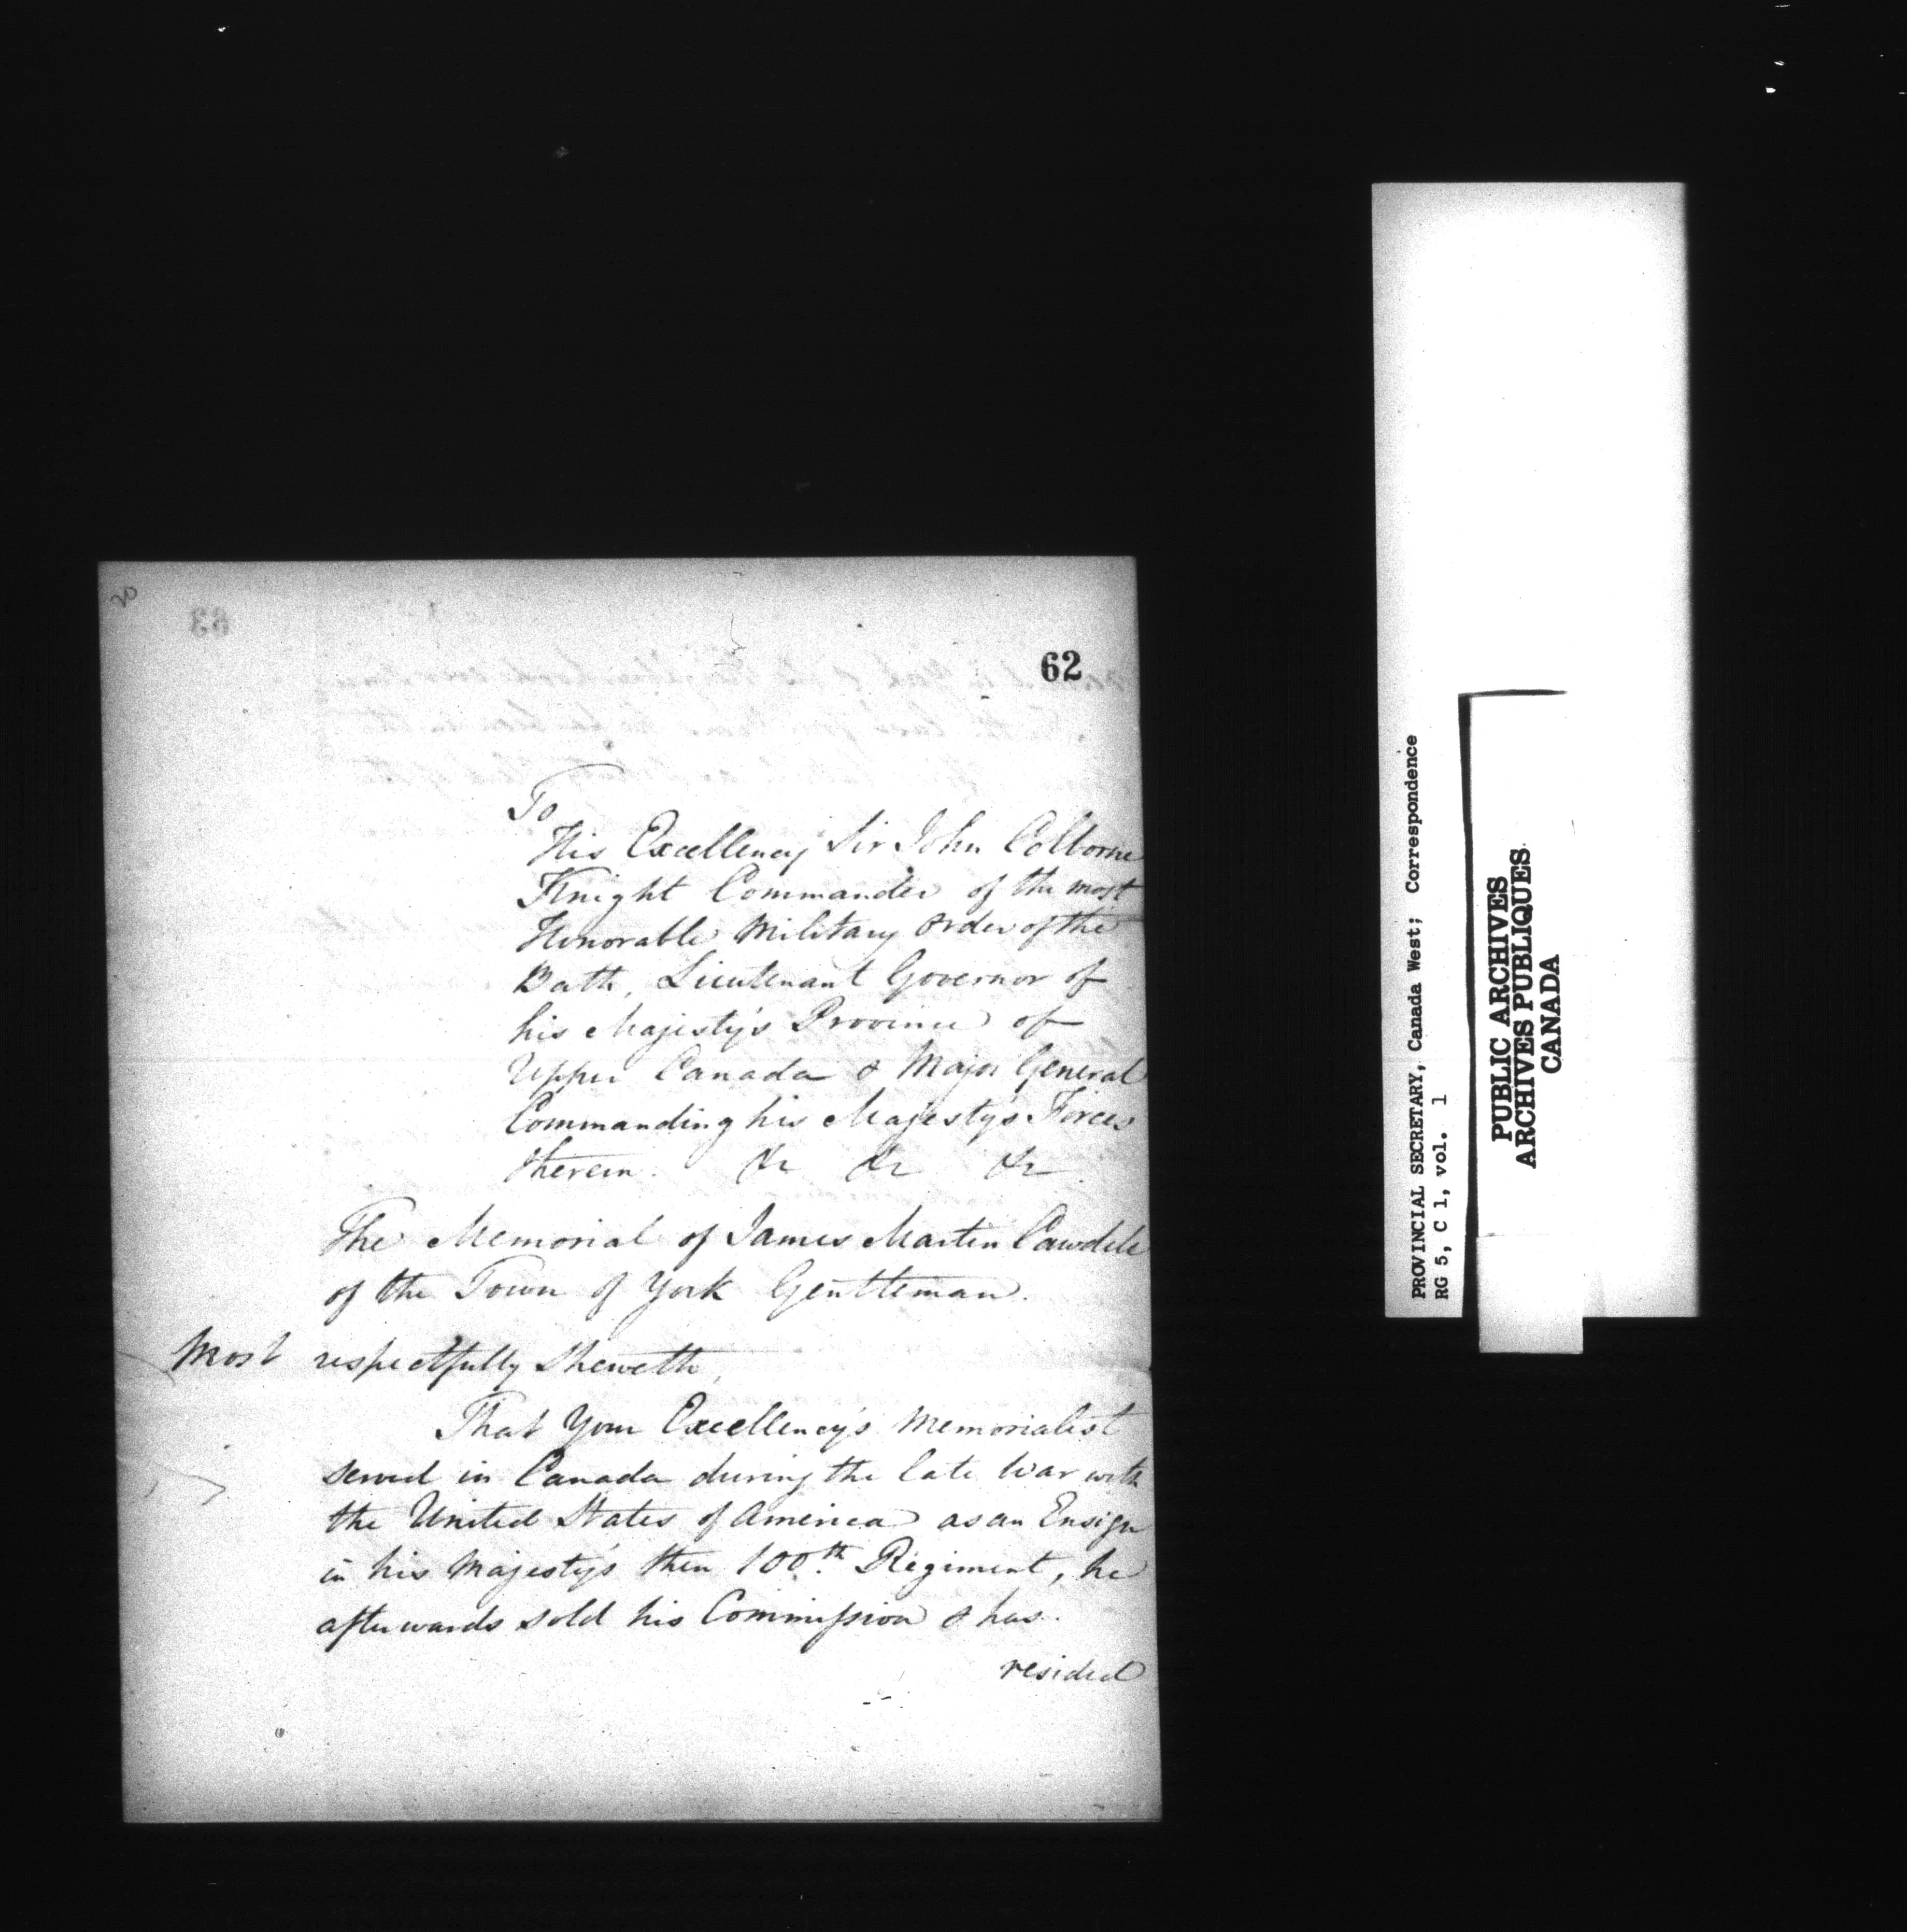 62
To
His Excellency Sir John Colborne
Knight Commander of the most
Honorable Military Order of the
Bath, Lieutenant Governor of
his Majesty's Province of
Upper Canada & Major General
Commanding his Majesty's Forces
therein. &c &c &c
The Memorial of James Martin Cawdell
of the Town of York Gentleman.
Most respectfully Sheweth,
That Your Excellency's Memorialist
served in Canada during the late War with
the United States of America as an Ensign
in his Majesty's then 100th Regiment, he
afterwards sold his Commission & has
resided
PROVINCIAL SECRETARY, Canada West; Correspondence
RG 5, C 1, vol. 1
PUBLIC ARCHIVES
ARCHIVES PUBLIQUES
CANADA